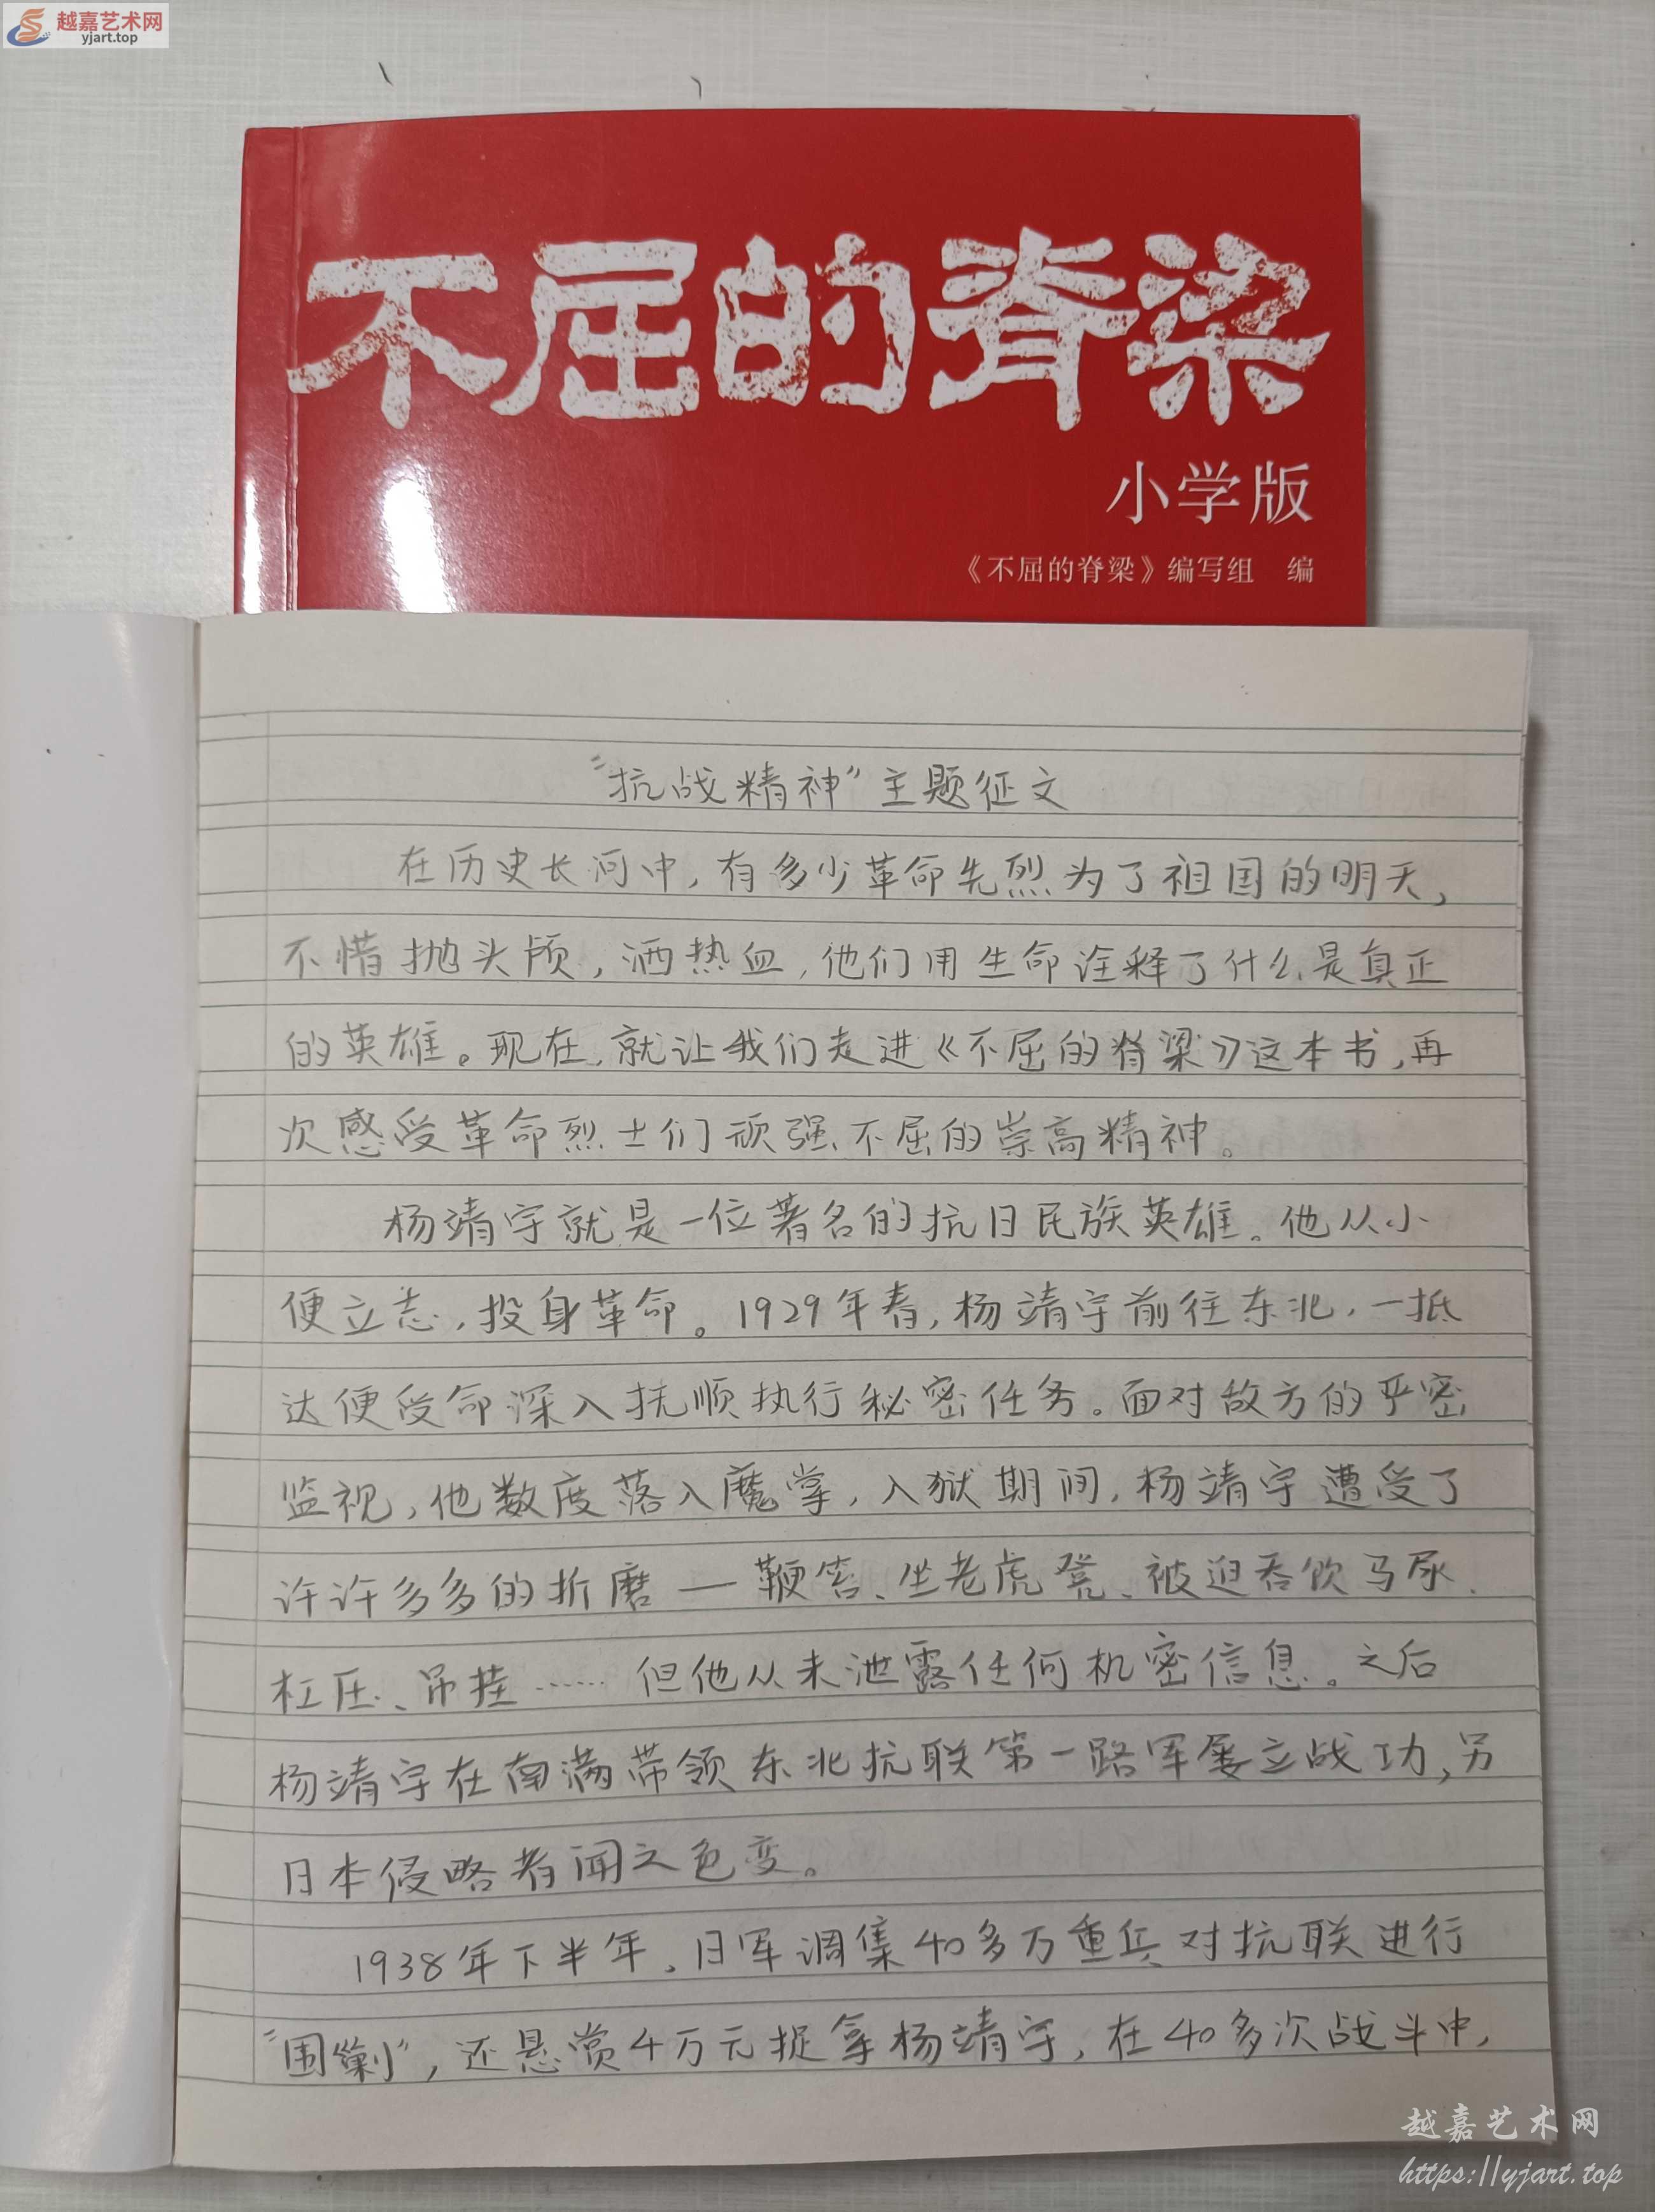 越嘉艺术网
yjart.top
不屈的脊梁
小学版
《不屈的脊梁》编写组 编
“抗战精神”主题征文
在历史长河中，有多少革命先烈为了祖国的明天，
不惜抛头颅，洒热血，他们用生命诠释了什么是真正
的英雄。现在，就让我们走进《不屈的脊梁》这本书，再
次感受革命烈士们顽强不屈的崇高精神。
杨靖宇就是一位著名的抗日民族英雄。他从小
便立志，投身革命。1929年春，杨靖宇前往东北，一抵
达便受命深入抚顺执行秘密任务。面对敌方的严密
监视，他数度落入魔掌，入狱期间，杨靖宇遭受了
许许多多的折磨—鞭笞、坐老虎凳、被迫吞饮马尿、
杠压、吊挂……但他从未泄露任何机密信息。之后
杨靖宇在南满带领东北抗联第一路军屡立战功，另
日本侵略者闻之色变。
1938年下半年，日军调集40多万重兵对抗联进行
“围剿”，还悬赏4万元捉拿杨靖宇，在40多次战斗中，
越嘉艺术网
https://yjart.top